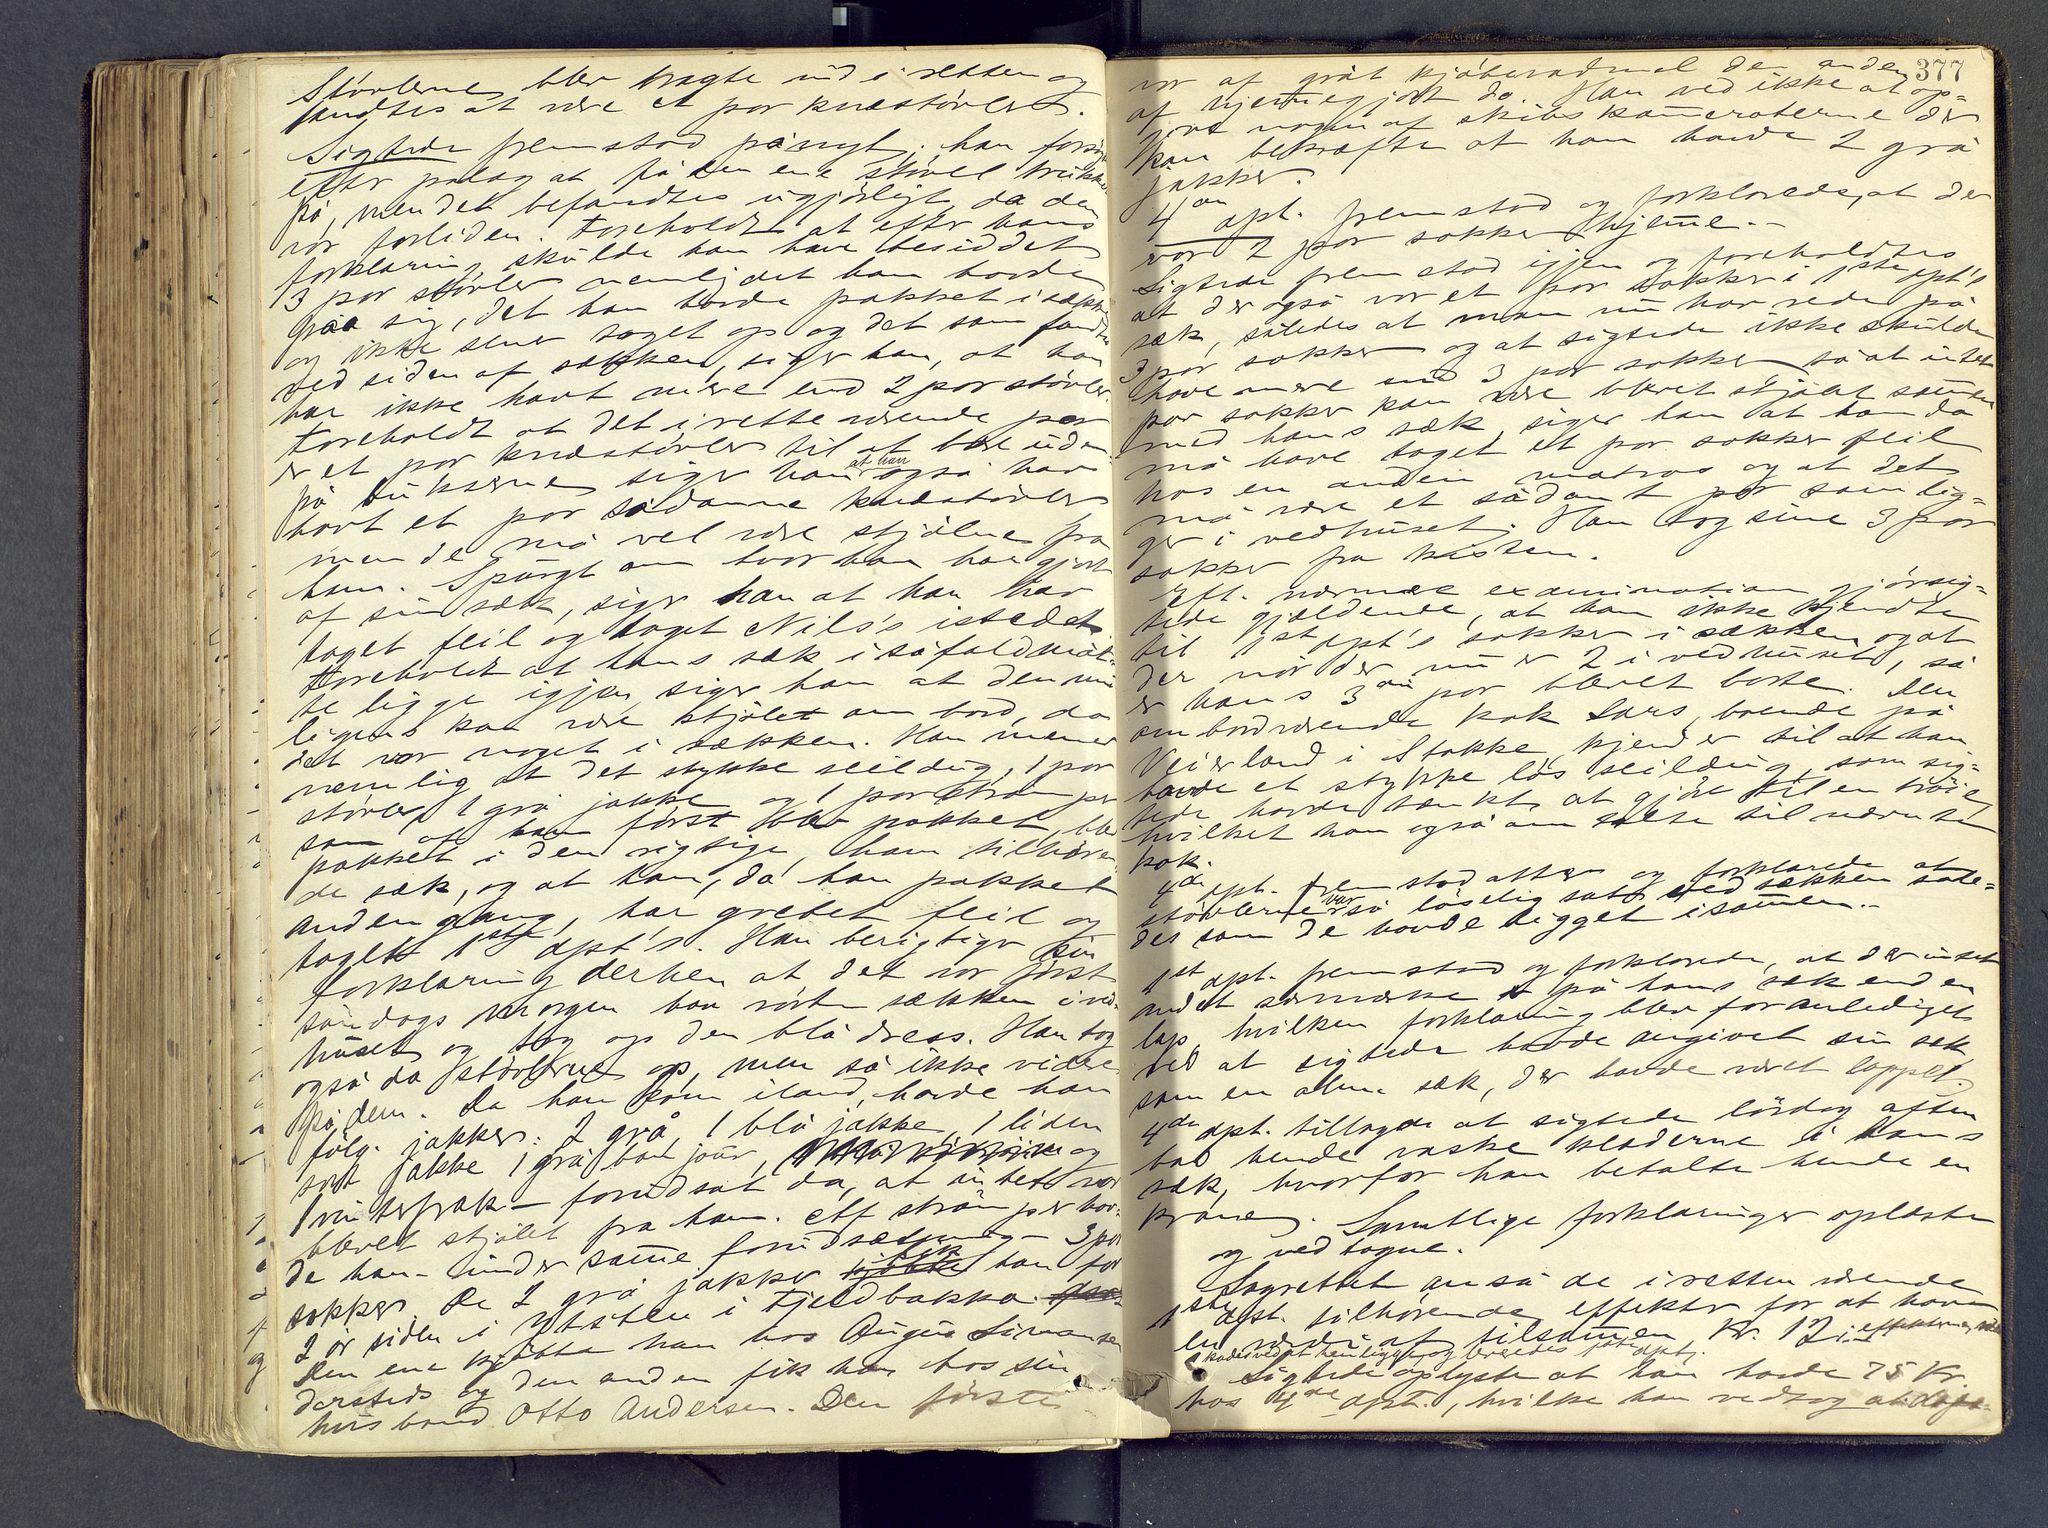 Støvlerne blev bragte ind i retten og
fandtes at være et par knæstøvler.
Sigtede fremstod pånyt. han forsøgte
efter pålæg at få den ene støvel trukket
på, men det befandtes ugjørligt, da den
var forliden. Foreholdt at efter hans
forklaring skulde han have besiddet
3 par støvler nemlig det han havde
paa sig, det han havde pakket i sækken
og ikke sener taget op og det som fandtes
ved siden af sækken, siger han, at han
har ikke havt mere end 2 par støvler.
Foreholdt at det i rette værende par
er et par knæstøvler til at bære uden
på buxerne siger han at han også har
havt et par sådanne knæstøvler
men de må vel være stjålne fra
ham. Spurgt om hvor han har gjort
af sin sæk, siger han at han har
taget feil og taget Nils's istedet.
Foreholdt at hans sæk i såfald måt-
te ligge igjen siger han at den mu-
ligens kan være stjålet om bord, da
det var noget i sækken. Han mener
nemlig at det stykke seildug, 1 par
støvler, 1 grå jakke og 1 par strømper
som af ham først blev pakket, blev
pakket i den rigtige, ham tilhøren-
de sæk, og at han, da han pakket
anden gang, har grebet feil og
taget 1ste dpt's. Han berigtiger sin
forklaring derhen at det var først
søndags morgen han rørte sækken i ved-
huset og tog op den blå dress. Han tog
også da støvlerne op, men så ikke videre
på dem. Da han kom iland, havde han
følg. jakker: 2 grå, 1 blå jakke, 1 liden
sort jakke 1 grå bon jour, og
1 vinterfrak – forudsat da, at intet var
blevet stjålet fra ham. Af strømper hav-
de han – under samme forudsætning – 3 par
sokker. De 2 grå jakker fik han for
2 år siden i Fjeldbakka.
Den ene kjøbte han hos August Simonsen
dersteds og den anden fik han hos sin
husbond Otto Andersen. Den første
377
var af gråt kjøbevadmel den anden
af hjemmegjort do. Han ved ikke at op-
give nogen af skibskameraterne der
kan bekræfte at han havde 2 grå
jakker.
4de dpt. fremstod og forklarede, at der
var 2 par sokker hjemme.–
Sigtede fremstod igjen og foreholdtes
at der også var et par sokker i 1ste dpt's
sæk, således at man nu har rede på
3 par sokker og at sigtede ikke skulde
have mere end 3 par sokker, så at intet
par sokker kan være blevet stjålet sammen
med hans sæk, siger han at han da
må have taget et par sokker feil
hos en anden matros og at det
må være et sådant par som lig-
ger i vedhuset. Han tog sine 3 par
sokker fra kisten.
Eft. nærmere examination gjør sig-
tede gjældende, at han ikke kjendte
til 1st dpt's sokker i sækken og at
der når der nu er 2 i vedhuset, så
er hans 3die par blevet borte. Den
ombordværende kok Lars, boende på
Veierland i Stokke, kjender til at han
havde et stykke løs seildug, som sig-
tede havde tænkt at gjøre til en trøie,
hvilket han også om talte til nævnte
kok.
4de dpt. fremstod atter og forklarede at
støvlerne var så løselig sat ved sækken såle-
des som de havde ligget isammen.–
1st dpt. fremstod og forklarede, at der intet
andet særmærke på hans sæk end en
lap, hvilken forklaring blev foranlediget
ved at sigtede havde angivet sin sæk
som en alm. sæk, der havde været lappet.
4de dpt. tillagde at sigtede lørdag aften
bad hende vaske klæderne i hans
sæk, hvorfor han betalte hende en
krone. Samtlige forklaringer oplæste
og vedtagne.
Lagrettet anså de i retten værende
1ste dpt. tilhørende effekter for at have
en værdi af tilsammen kr. 12;
Sigtede oplyste at han havde 75 Kr.
hos 4de dpt., hvilke han vedtog at